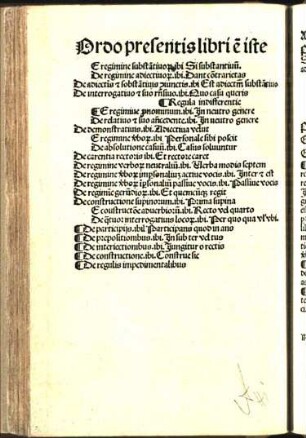 Ordo presentis libri ē iste
E regimine substātiuoꝝ.ibi Si substantiuū.
De regimine adiectiuoꝝ.ibi. Dant cōtrarietas
De adiectis ⁊ substātiuis iunctis.ibi Est adiectū substātius
De interrogatiuo ⁊ suo rñsiuo.ibi. Quo casu queris
Regula indifferentie
E regimine pnominum.ibi. In neutro genere
De relatiuo ⁊ suo añcedente.ibi. In neutro genere
De demonstratiuis.ibi. Adiectiua velut
E regimine vboꝝ.ibi Personale sibi poscit
De absolutione casuū.ibi. Casus soluuntur
De carentia rectoris ibi. Et rectore caret
De regimine verboꝝ neutraliū.ibi. Verba modis septem
De regimine vboꝝ impsonaliū actiue vocis.ibi. Inter ⁊ est
De regimine vboꝝ ipsonaliū passiue vocis.ibi. Passiue vocis
De regimine gerūdioꝝ.ibi. Et quemuis regit
De constructione supinorum.ibi. Prima supina
E constructiōe aduerbiorū.ibi. Recto vel quarto
De interrogatiuis locoꝝ.ibi. Per quo qua vl' vbi
De participijs.ibi Participans quod in ans
De prepositionibus.ibi. In sub ter vel tus
De interiectionibus.ibi. Iungitur o rectis
De constructione.ibi. Construe sic
De regulis impedimentalibus